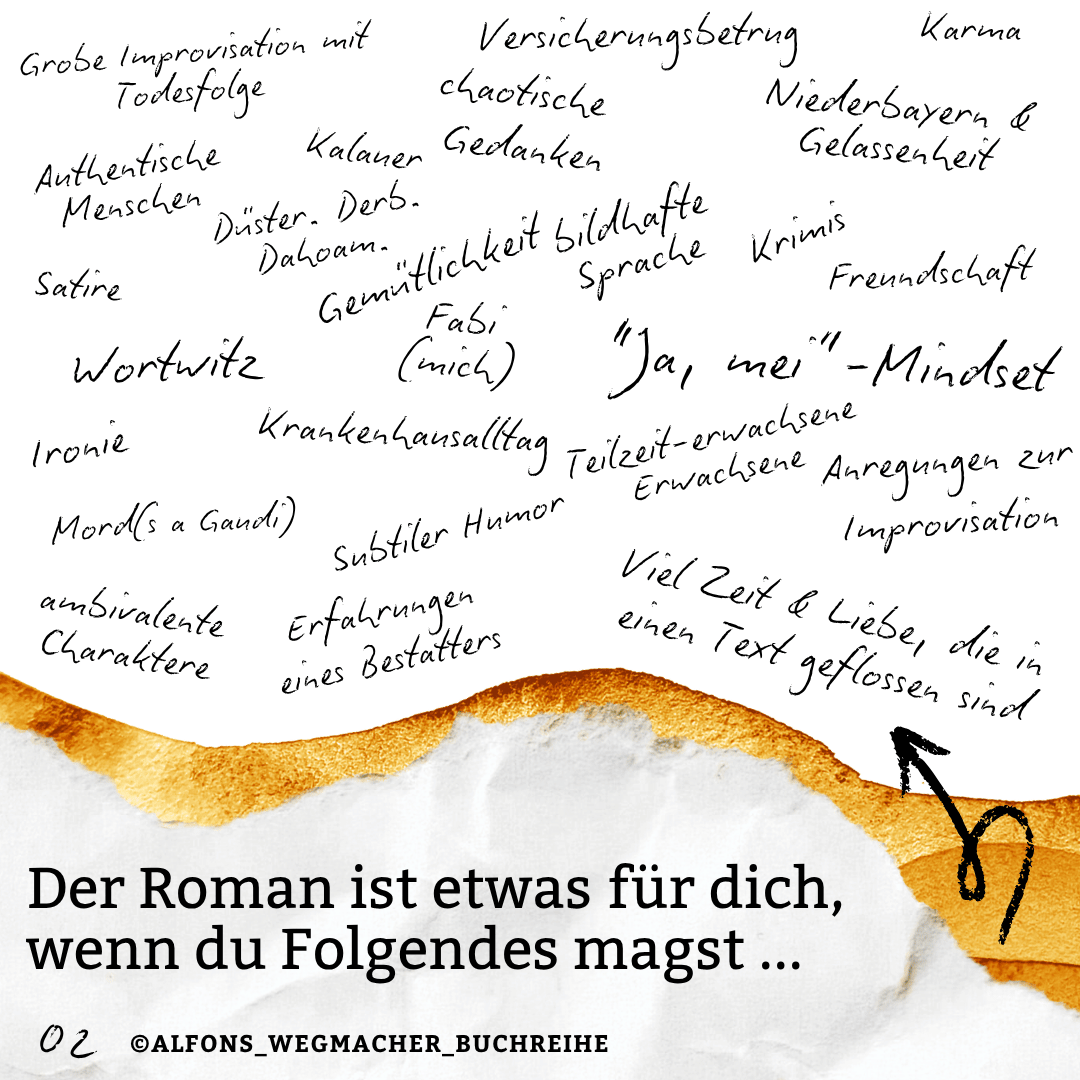 Grobe Improvisation mit
Todesfolge
Versicherungsbetrug
Karma
chaotische
Gedanken
Niederbayern &
Gelassenheit
Authentische
Menschen
Kalauer
Düster. Derb.
Dahoam.
Gemütlichkeit
bildhafte
Sprache
Krimis
Freundschaft
Satire
Fabi
(mich)
Wortwitz
"Ja, mei"-Mindset
Ironie
Krankenhausalltag
Teilzeit-erwachsene
Erwachsene
Anregungen zur
Improvisation
Mord(s a Gaudi)
Subtiler Humor
Viel Zeit & Liebe, die in
einen Text geflossen sind
ambivalente
Charaktere
Erfahrungen
eines Bestatters
Der Roman ist etwas für dich,
wenn du Folgendes magst ...
02 ©ALFONS_WEGMACHER_BUCHREIHE